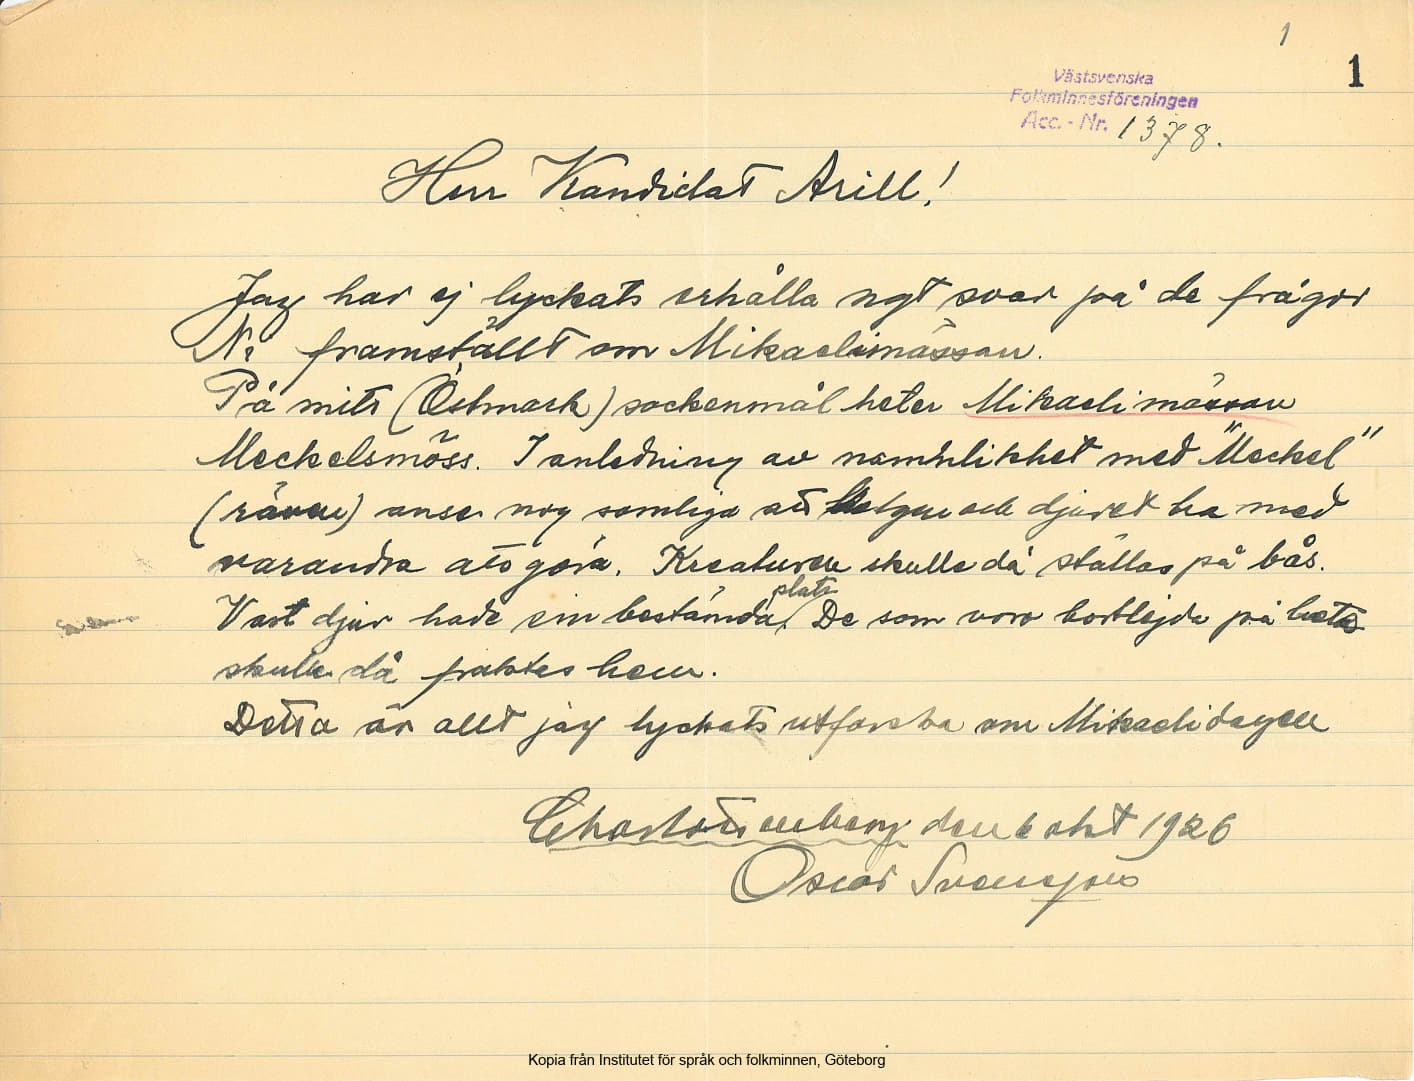 1
1
Västsvenska
Folkminnesföreningen
Acc. - Nr. 1378.
Herr Kandidat Arill!
Jag har ej lyckats erhålla ngt svar på de frågor
Ni framställt om Mikaelimässan.
På mitt (Östmark) sockenmål heter Mikaelimässan
Meckelsmöss. I anledning av namnlikhet med "Meckel"
(räven) anse nog somliga att helgen och djuret ha med
varandra att göra. Kreaturen skulle då ställas på bås.
Vart djur hade sin bestämda plats. De som voro bortlejda på bete
skulle då fraktas hem.
Detta är allt jag lyckats utforska om Mikaelidagen
Charlottenberg den 6 okt 1926
Oscar Svensson
Kopia från Institutet för språk och folkminnen, Göteborg